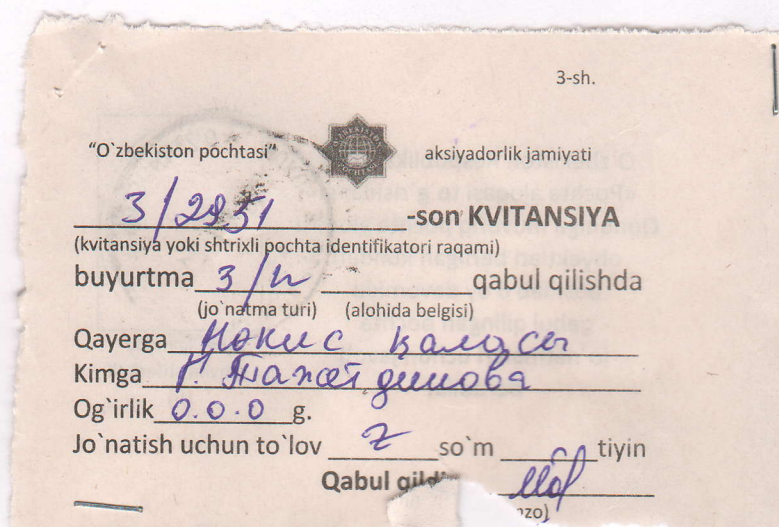 3-sh.
"O`zbekiston pochtasi" aksiyadorlik jamiyati
3/2951 -son KVITANSIYA
(kvitansiya yoki shtrixli pochta identifikatori raqami)
buyurtma з/п qabul qilishda
(jo`natma turi) (alohida belgisi)
Qayerga Нөкис қаласы
Kimga Г. Тажетдинова
Og`irlik 0.0.0 g.
Jo`natish uchun to`lov z so`m tiyin
Qabul